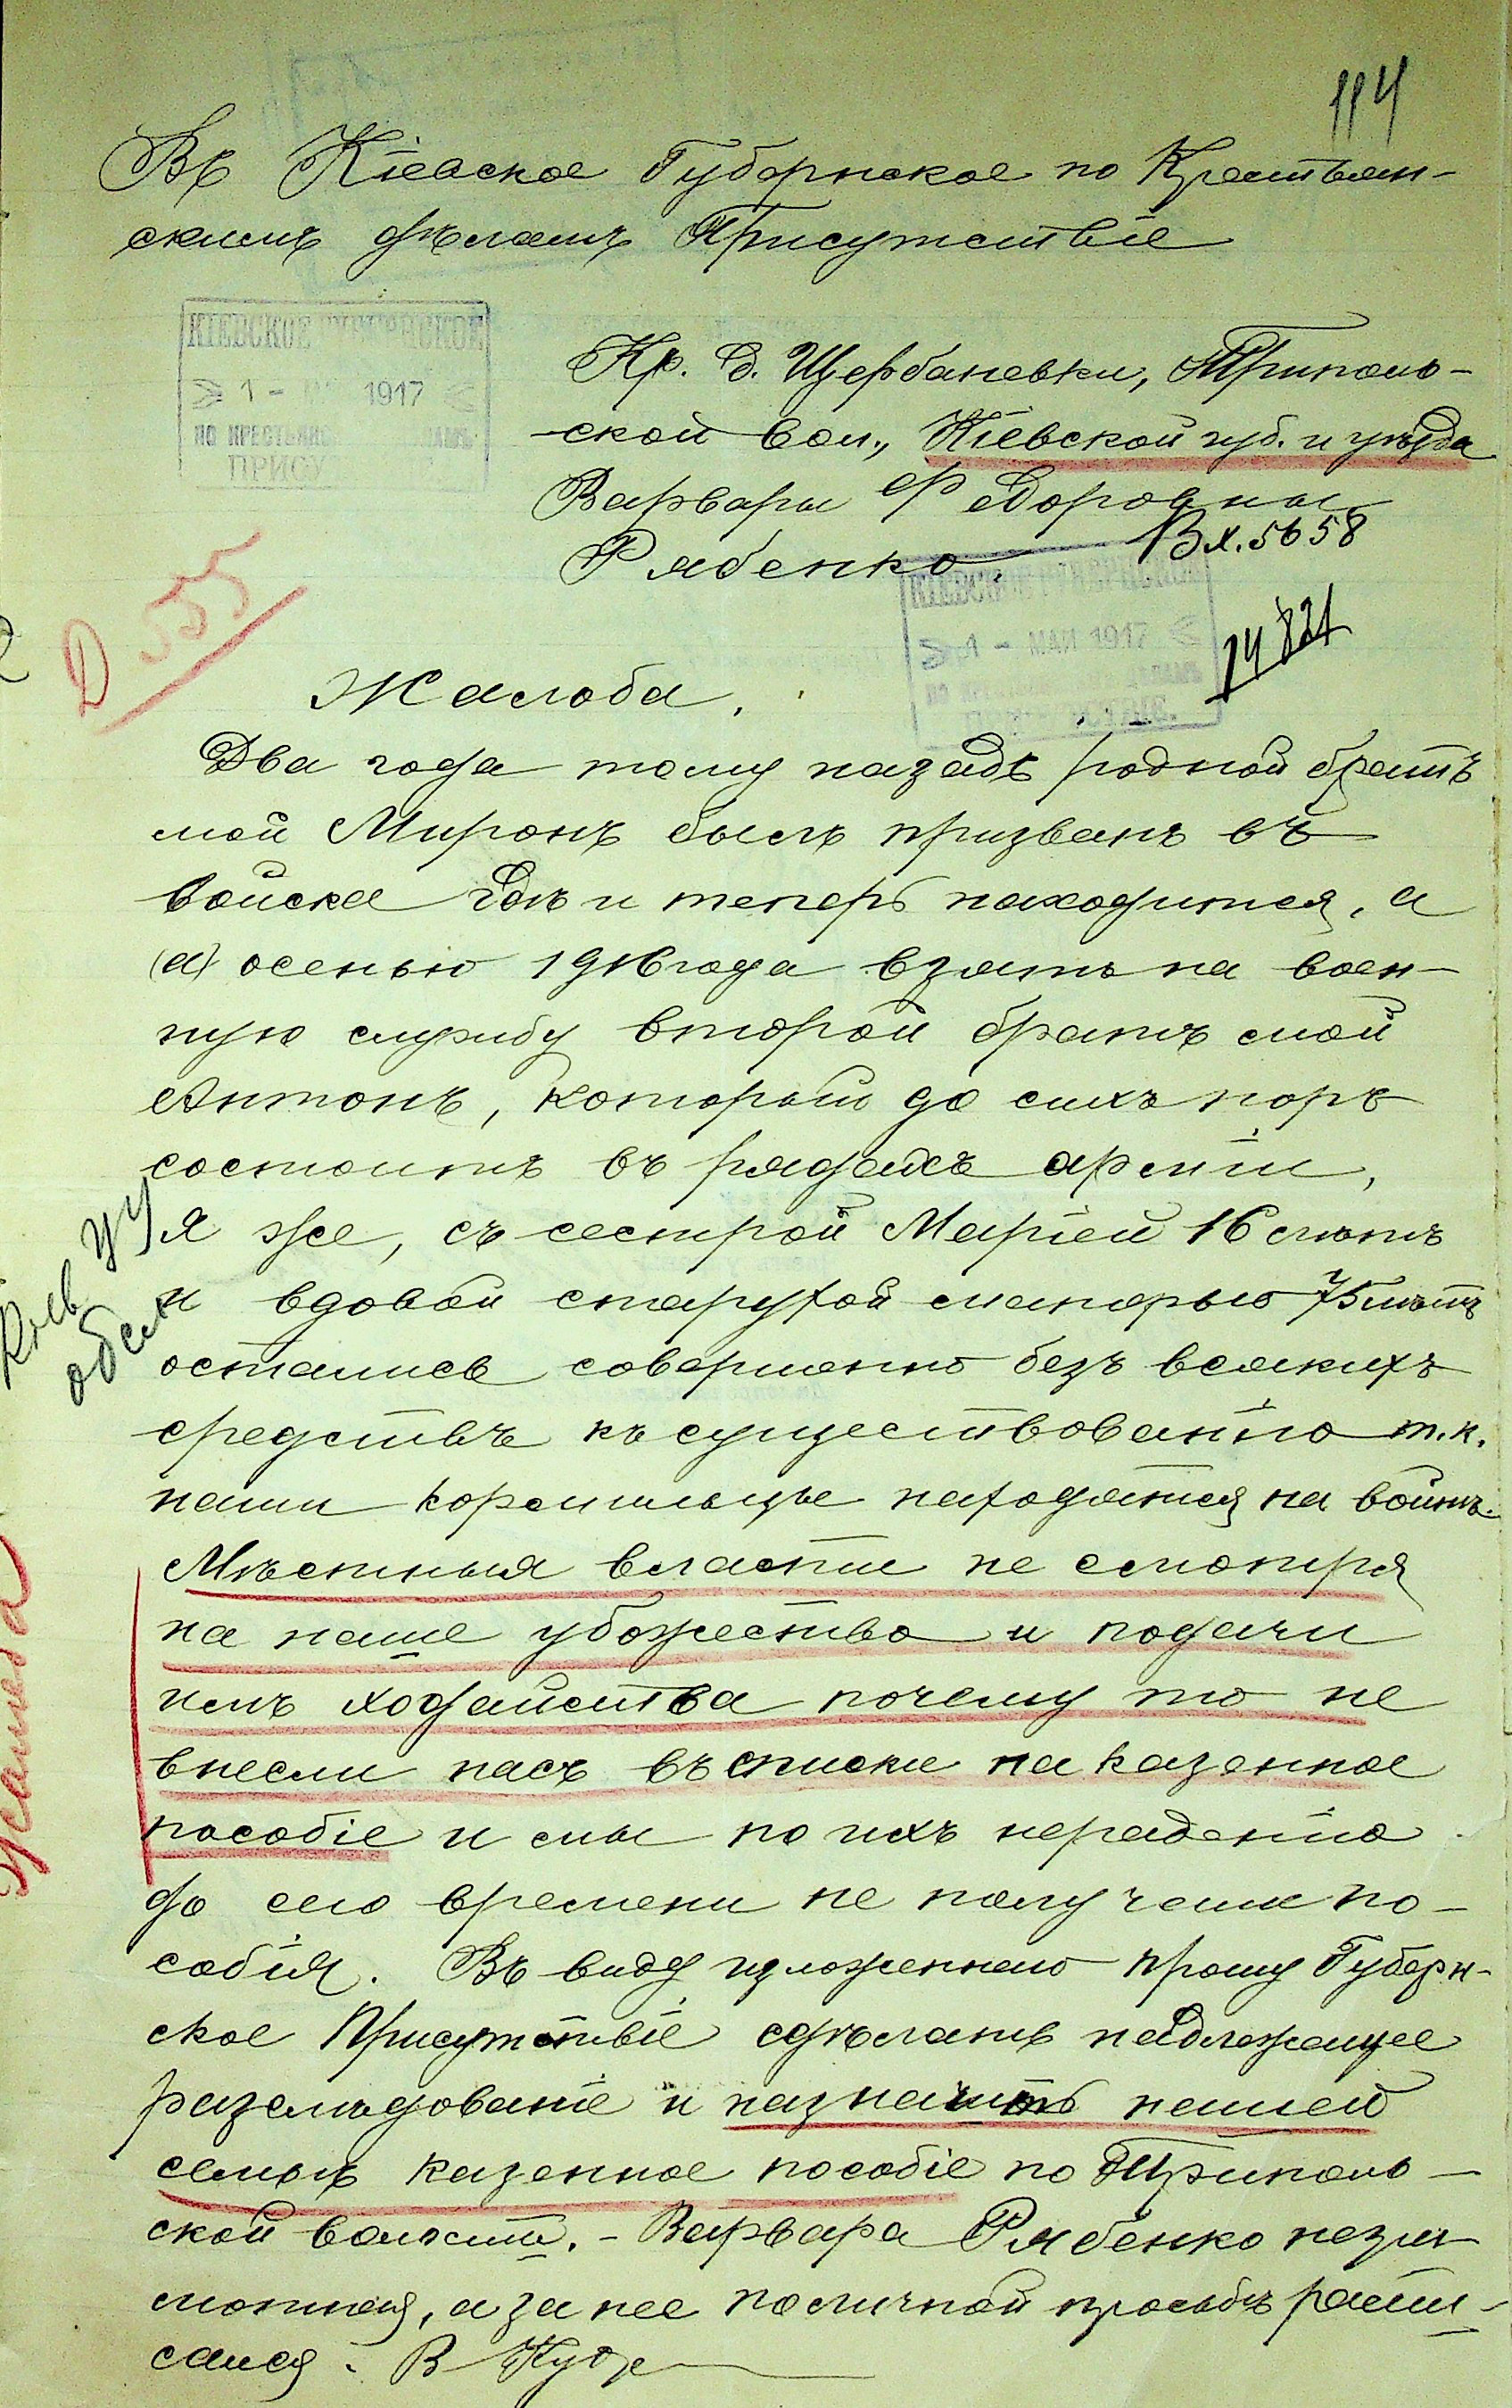 114
Въ Кіевское Губернское по Крестьян-
скимъ дѣламъ Присутствіе
КІЕВСКОЕ ГУБЕРНСКОЕ
1 - 1917
ПО КРЕСТЬЯНС
ПРИСУ
Кр. д. Щербаневки, Триполь-
ской вол., Кіевской губ. и уѣзда
Варвары Ѳедоровны
Рябенко
Вх. 5658
КІЕВСКОЕ ГУБЕРНСКОЕ
1 - МАЙ 1917
14821
Д 555
Жалоба.
Два года тому назадъ родной братъ
мой Миронъ былъ призванъ въ
войска гдѣ и теперь находится, а
(а) осенью 1916 года взятъ на воен-
ную службу второй братъ мой
Антонъ, который до сихъ поръ
состоитъ въ рядахъ арміи,
я же, съ сестрой Маріей 16 лѣтъ
и вдовой старухой матерью 75 лѣтъ
остались совершенно безъ всякихъ
средствъ къ существованію т.к.
наши кормильцы находятся на войнѣ.
Мѣстныя власти не смотря
на наше убожество и подачи
имъ ходайства почему то не
внесли насъ въ списки на казенное
пособіе и мы по ихъ нераденію
до сего времени не получали по-
собія. Въ виду изложеннаго прошу Губерн-
ское Присутствіе сдѣлать надлежащее
разслѣдованіе и назначить нашей
семьѣ казенное пособіе по Триполь-
ской волости. - Варвара Рябенко негра-
мотная, а за нее по личной просьбѣ распи-
сался: